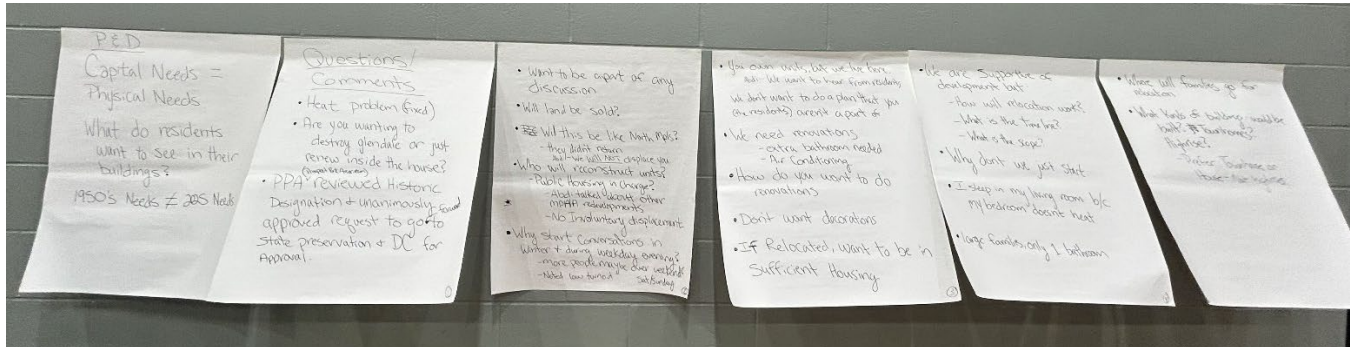 P&D
Captal Needs =
Physical Needs
What do residents
want to see in their
buildings?
1950's Needs ≠ 2025 Needs
Questions/
Comments
• Heat problem (fixed)
• Are you wanting to
destroy glendale or just
renew inside the house?
• PPA reviewed Historic
Designation & unanimously
approved request to go to
State preservation & DC for
Approval.
1
• Want to be apart of any
discussion
• Will land be sold?
• Will this be like North Mpls?
- they didn't return
Abdi - We will NOT displace you
• Who will reconstruct units?
- Public Housing in charge?
- Abdi talked about other
MPHA redevelopments
- No Involuntary displacement
• Why start Conversations in
Winter & during weekday evening?
- more people maybe over weekends
Sat/Sunday
- Noted low turnout
• You own units, but we live here
Abdi - We want to hear from residents,
We don't want to do a plan that you
(the residents) aren't a part of
• We need renovations
- extra bathroom needed
- Air Conditioning
• How do you want to do
renovations
• Don't want decorations
• If Relocated, want to be in
Sufficient Housing
3
• We are supportive of
development but
- How will relocation work?
- What is the time line?
- What is the scope?
• Why don't we just start
• I sleep in my living room b/c
my bedroom doesn't heat
• large families, only 1 bathroom
4
• Where will families go for
relocation
• What kinds of building would be
built? townhome?
Highrise?
- Prefer Townhouse or
House - not highrise